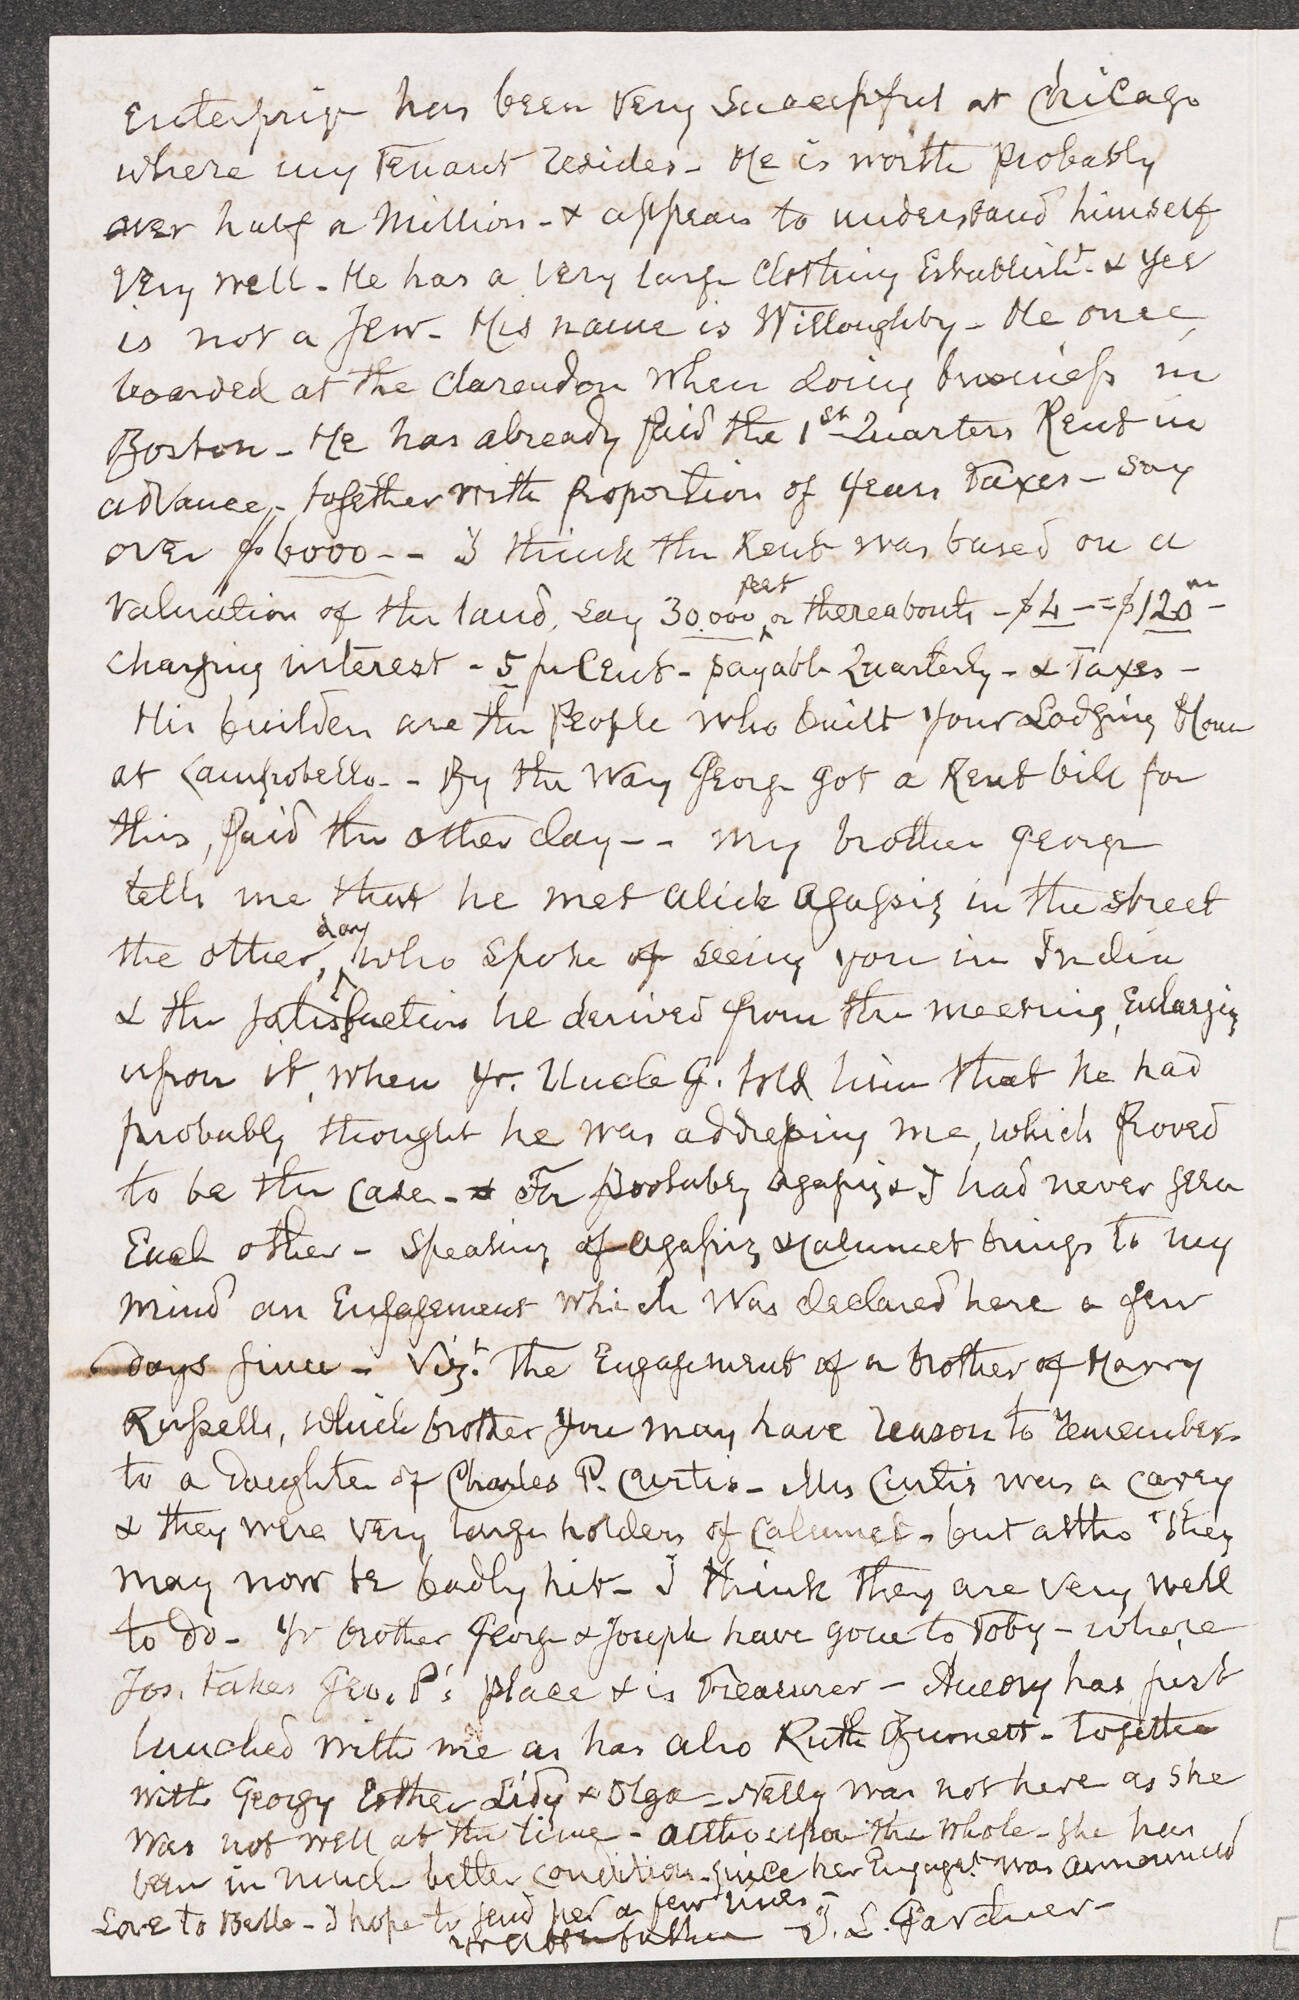 Enterprise has been very successful at Chicago
where my Tenant resides - He is worth probably
over half a Million - & appears to understand himself
very well - He has a very large Clothing Establisht. & yet
is not a Jew - His name is Willoughby - He once
boarded at the Clarendon when doing business in
Boston - He has already paid the 1st Quarters Rent in
advance, - together with proportion of years Taxes - say
over $6000 - - I think the Rent was based on a
valuation of the land, say 30,000 feet or thereabouts - $4 - = $120m -
charging interest - 5 pr Cent - payable Quarterly - & Taxes -
His builders are the People who built your Lodging House
at Campobello - - By the Way George got a Rent bill for
this, paid the other day - - My brother George
tells me that he met Alick Agassiz in the street
the other day, who spoke of seeing you in India
& the satisfaction he derived from the meeting, Enlarging
upon it, when yr. Uncle G. told him that he had
probably thought he was addressing me, which proved
to be the case - & For probably Agassiz & I had never seen
Each other - Speaking of Agassiz & Calumet brings to my
mind an Engagement which was declared here a few
days since - Vizt. The Engagement of a brother of Harry
Russells, which brother you may have reason to remember -
to a daughter of Charles P. Curtis - Mrs Curtis was a Carey
& they were very large holders of Calumet - but altho' they
may now be badly hit - I think they are very well
to do - Yr brother George & Joseph have gone to Toby - where
Jos. takes Geo. P's place & is Treasurer - Amory has just
lunched with me as has also Ruth Burnett - together
with Georgy Esther Lidy & Olga - Nelly was not here as she
was not well at the time - altho upon the whole - she has
been in much better condition since her Engagt. was announced
Love to Belle - I hope to send her a few lines -
Yr Aff father - J. L. Gardner -